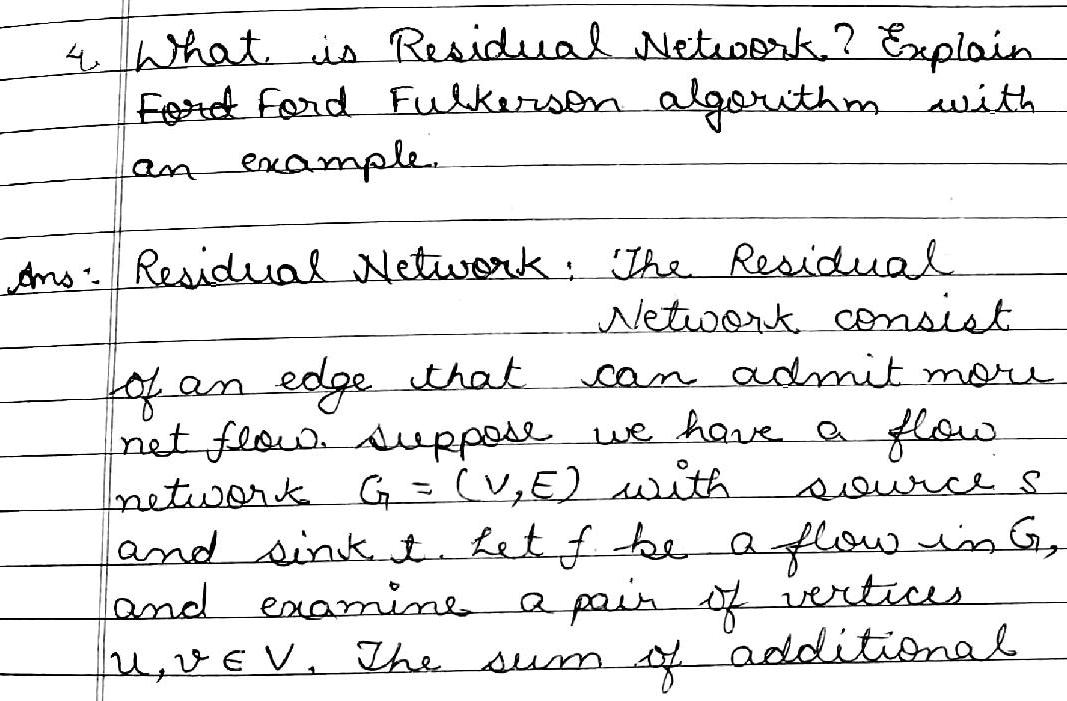 4. What is Residual Network? Explain
Ford Ford Fulkerson algorithm with
an example.
Ans:- Residual Network: The Residual
Network consist
of an edge that can admit more
net flow. Suppose we have a flow
network G = (V,E) with source s
and sink t. Let f be a flow in G,
and examine a pair of vertices
u, v ∈ V. The sum of additional